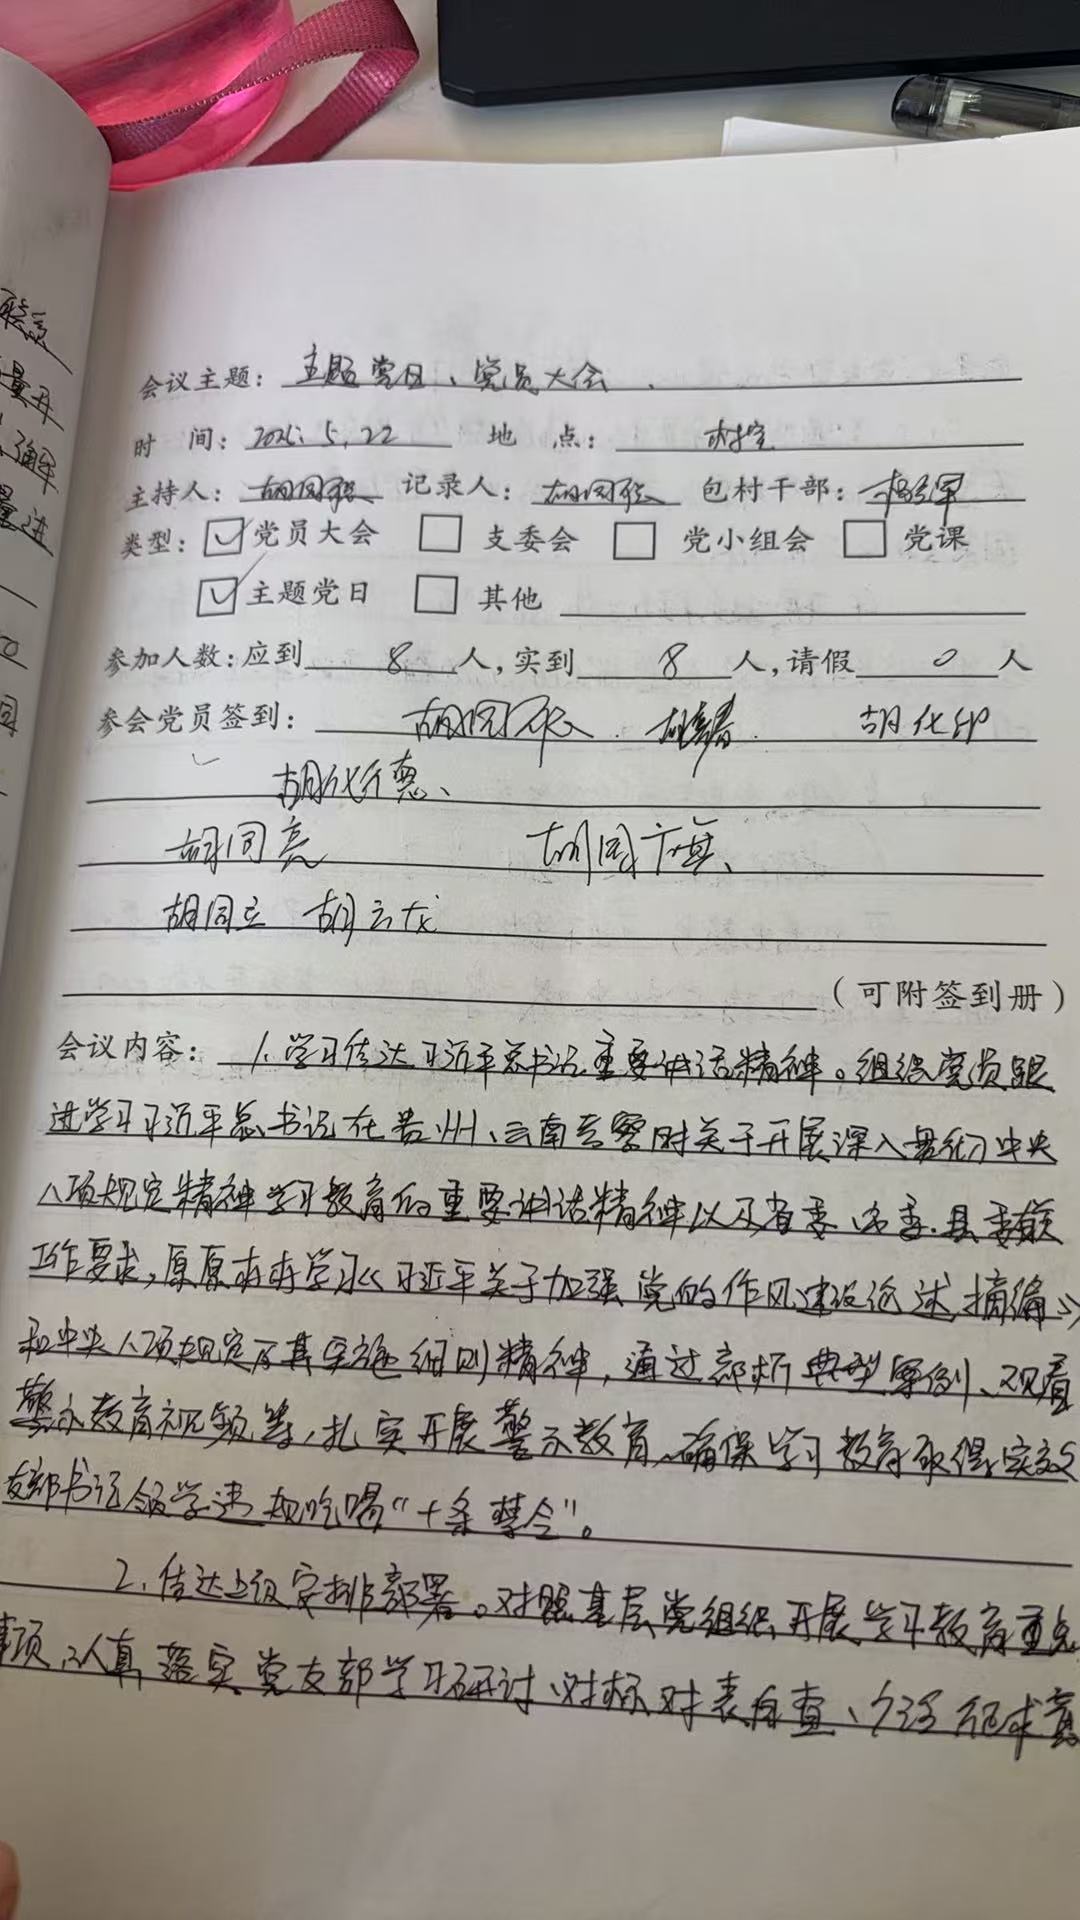 联系
量开
了解
量进
会议主题：主题党日、党员大会
时 间：2025.5.22 地 点：村室
主持人： 记录人： 包村干部：
类型：☑党员大会 □支委会 □党小组会 □党课
☑主题党日 □其他
参加人数：应到 8 人，实到 8 人，请假 0 人
参会党员签到： 胡化印
胡同亮 胡同旗、
胡同立 胡云龙
（可附签到册）
会议内容：1.学习传达习近平总书记重要讲话精神。组织党员跟
进学习习近平总书记在贵州、云南考察时关于开展深入贯彻中央
八项规定精神学习教育的重要讲话精神以及省委、市委、县委有关
工作要求，原原本本学习《习近平关于加强党的作风建设论述摘编》
和中央八项规定及其实施细则精神，通过剖析典型案例、观看
警示教育视频等，扎实开展警示教育，确保学习教育取得实效
支部书记领学违规吃喝“十条禁令”。
2、传达上级安排部署。对照基层党组织开展学习教育重点
事项，认真落实党支部学习研讨、对标对表自查、广泛征求意